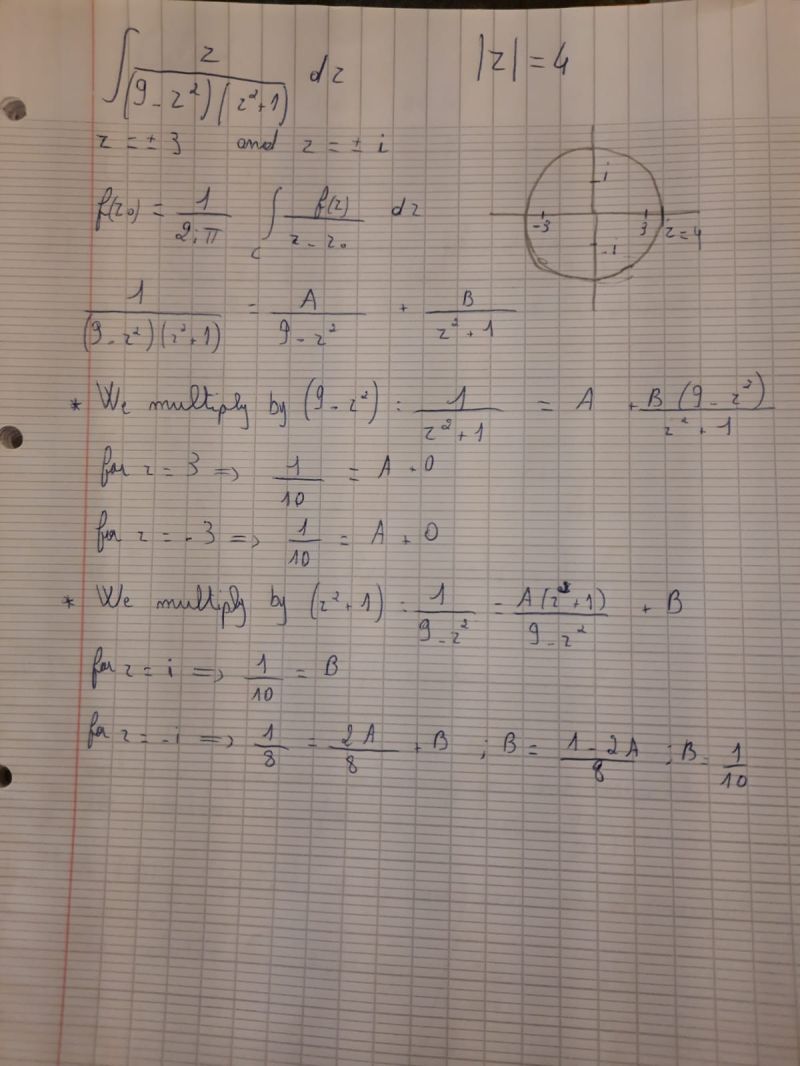 ∫ z / ((9 - z²)(z² + 1)) dz |z| = 4
z = ± 3 and z = ± i
f(z₀) = 1 / 2iπ ∫_c f(z) / (z - z₀) dz
i
-3 3 z = 4
-i
1 / ((9 - z²)(z² + 1)) = A / (9 - z²) + B / (z² + 1)
* We multiply by (9 - z²) : 1 / (z² + 1) = A + B (9 - z²) / (z² + 1)
for z = 3 => 1 / 10 = A + 0
for z = -3 => 1 / 10 = A + 0
* We multiply by (z² + 1) : 1 / (9 - z²) = A (z² + 1) / (9 - z²) + B
for z = i => 1 / 10 = B
for z = -i => 1 / 8 = 2A / 8 + B ; B = (1 - 2A) / 8 ; B = 1 / 10